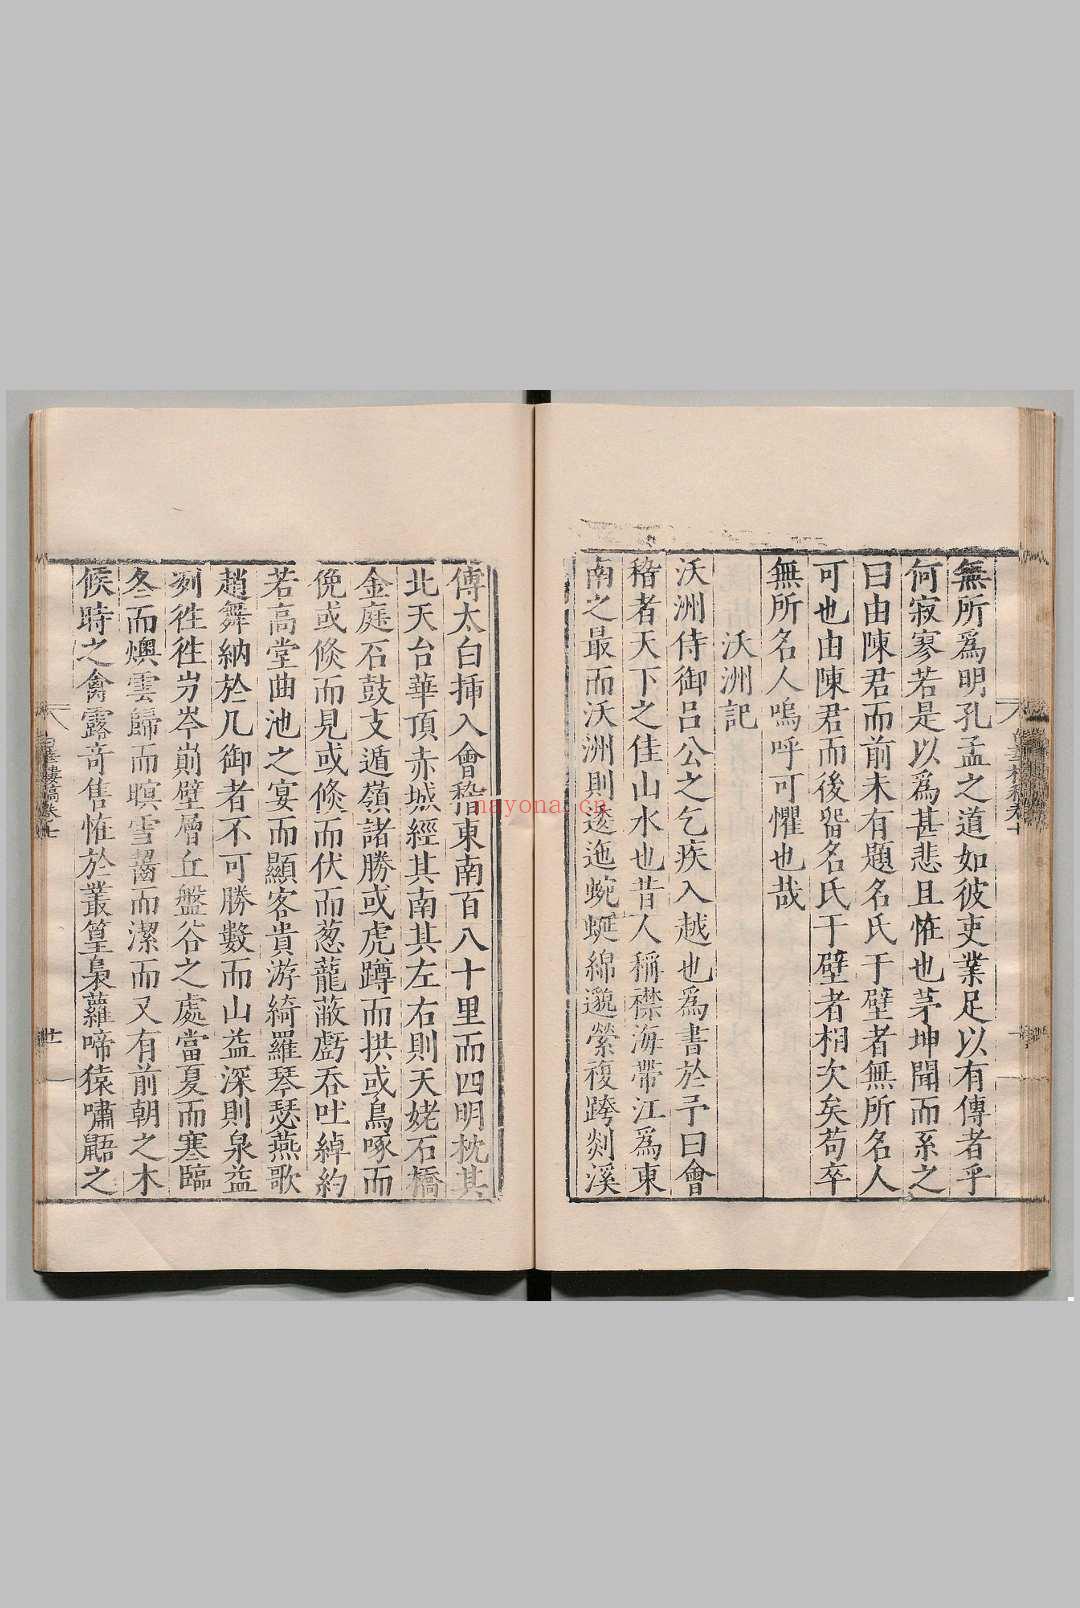 無所爲明孔孟之道如彼吏業足以有傳者乎
何寂寥若是以爲甚悲且惟也茅坤聞而系之
曰由陳君而前未有題名氏于壁者無所名人
可也由陳君而後㽞名氏于壁者相次矣苟卒
無所名人嗚呼可懼也哉
沃洲記
沃洲侍御呂公之乞疾入越也爲書於予曰會
稽者天下之佳山水也昔人稱襟海帶江爲東
南之最而沃洲則逶迤蜿蜒綿邈縈複跨剡溪
傳太白揷入會稽東南百八十里而四明枕其
北天台華頂赤城經其南其左右則天姥石橋
金庭石鼓支遁嶺諸勝或虎蹲而拱或鳥啄而
俛或倐而見或倐而伏而葱蘢蔽虧吞吐綽約
若高堂曲池之宴而顯客貴游綺羅琴瑟燕歌
趙舞納於几御者不可勝數而山益深則泉益
冽徃徃岃岑巓壁層丘盤谷之處當夏而寒臨
冬而燠雲歸而暝雪齧而潔而又有前朝之木
候時之禽露奇售惟於叢篁裊蘿啼猿嘯鼯之
白華樓稿卷七
廿一
nayona.cn